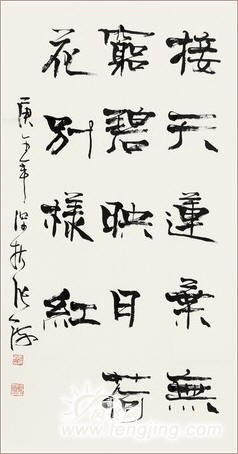 接天蓮葉無
窮碧映日荷
花別樣紅
庚午年
fengjing.com